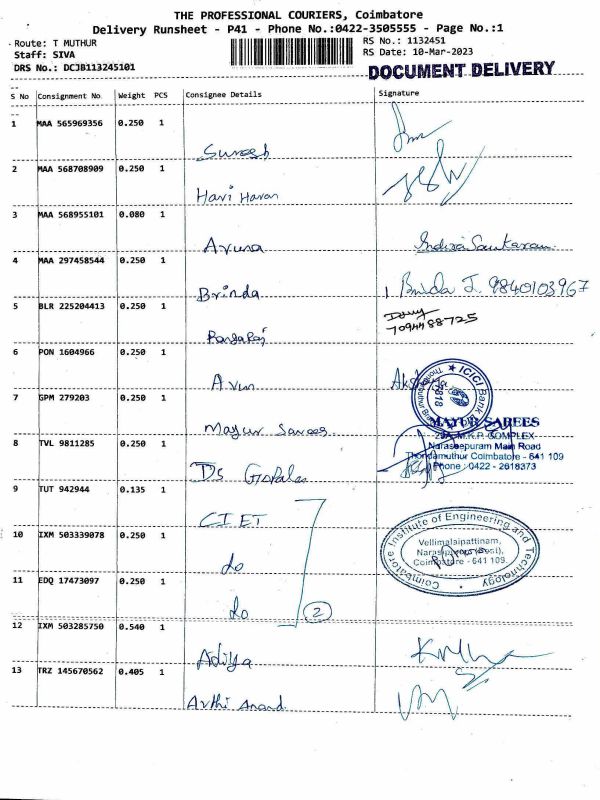 THE PROFESSIONAL COURIERS, Coimbatore
Delivery Runsheet - P41 - Phone No.:0422-3505555 - Page No.:1
Route: T MUTHUR
RS No.: 1132451
Staff: SIVA
RS Date: 10-Mar-2023
DRS No.: DCJB113245101
DOCUMENT DELIVERY
S No Consignment No Weight PCS Consignee Details Signature
1 MAA 565969356 0.250 1
Suresh
2 MAA 568708909 0.250 1
Hari Haran
3 MAA 568955101 0.080 1
Aruna
4 MAA 297458544 0.250 1
Brinda Brinda J. 9840103967
5 BLR 225204413 0.250 1
7094488725
6 PON 1604966 0.250 1
Arun
ICICI Bank
7 GPM 279203 0.250 1
Mayur Sarees
MAYUR SAREES
29A, M.K.P. COMPLEX
Naraseepuram Main Road
Thondamuthur Coimbatore - 641 109
Phone : 0422 - 2618373
8 TVL 9811285 0.250 1
Ds Gopala
9 TUT 942944 0.135 1
CIET
10 IXM 503339078 0.250 1
do
Coimbatore Institute of Engineering and Technology
Vellimalaipattinam,
Narasipuram (Post),
Coimbatore - 641 109.
11 EDQ 17473097 0.250 1
do 2
12 IXM 503285750 0.540 1
Aditya
13 TRZ 145670562 0.405 1
Arthi Anand